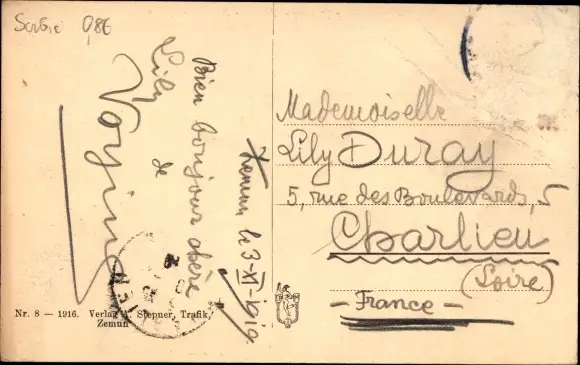 Serbie 0,8€
Bien bonjour chère
Lily de
Vojin
Zemun le 3-XI-1919.
Mademoiselle
Lily Duray
5, rue des Boulevards, 5
Charlieu
(Loire)
- France -
Nr. 8 — 1916. Verlag A. Stepner, Trafik,
Zemun